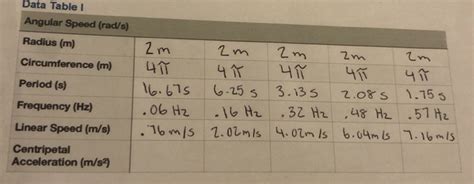 Data Table I
Angular Speed (rad/s)
Radius (m) 2m 2m 2m 2m 2m
Circumference (m) 4π 4π 4π 4π 4π
Period (s) 16.67s 6.25 s 3.13s 2.08s 1.75s
Frequency (Hz) .06 Hz .16 Hz .32 Hz .48 Hz .57 Hz
Linear Speed (m/s) .76m/s 2.02m/s 4.02m/s 6.04m/s 7.16m/s
Centripetal
Acceleration (m/s²)